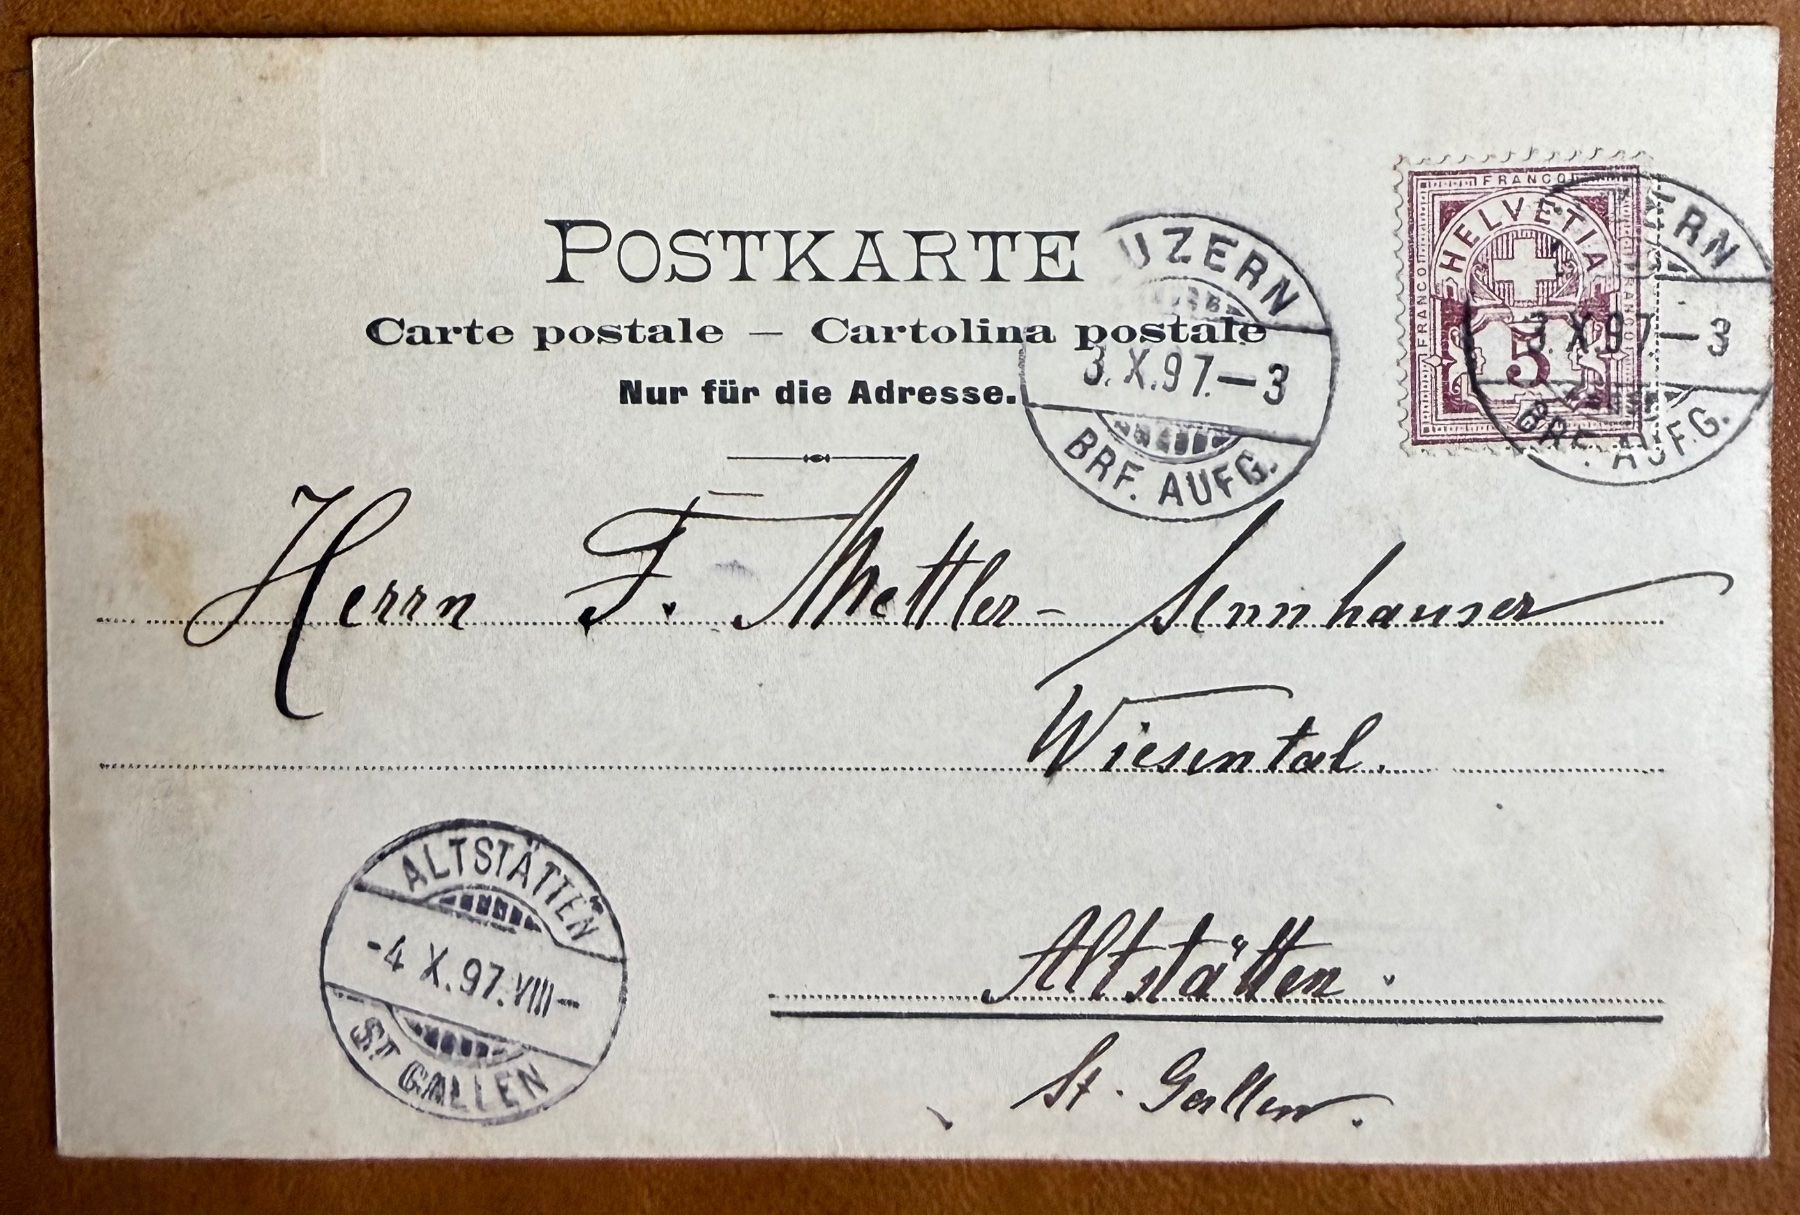 POSTKARTE
Carte postale – Cartolina postale
Nur für die Adresse.
LUZERN
3.X.97.–3
BRF. AUFG.
FRANCO
FRANCO
FRANCO
HELVETIA
5
LUZERN
3.X.97.–3
BRF. AUFG.
Herrn F. Mettler-Sennhauser
Wiesental.
Altstätten.
St. Gallen.
ALTSTÄTTEN
-4 X.97.VIII–
ST GALLEN